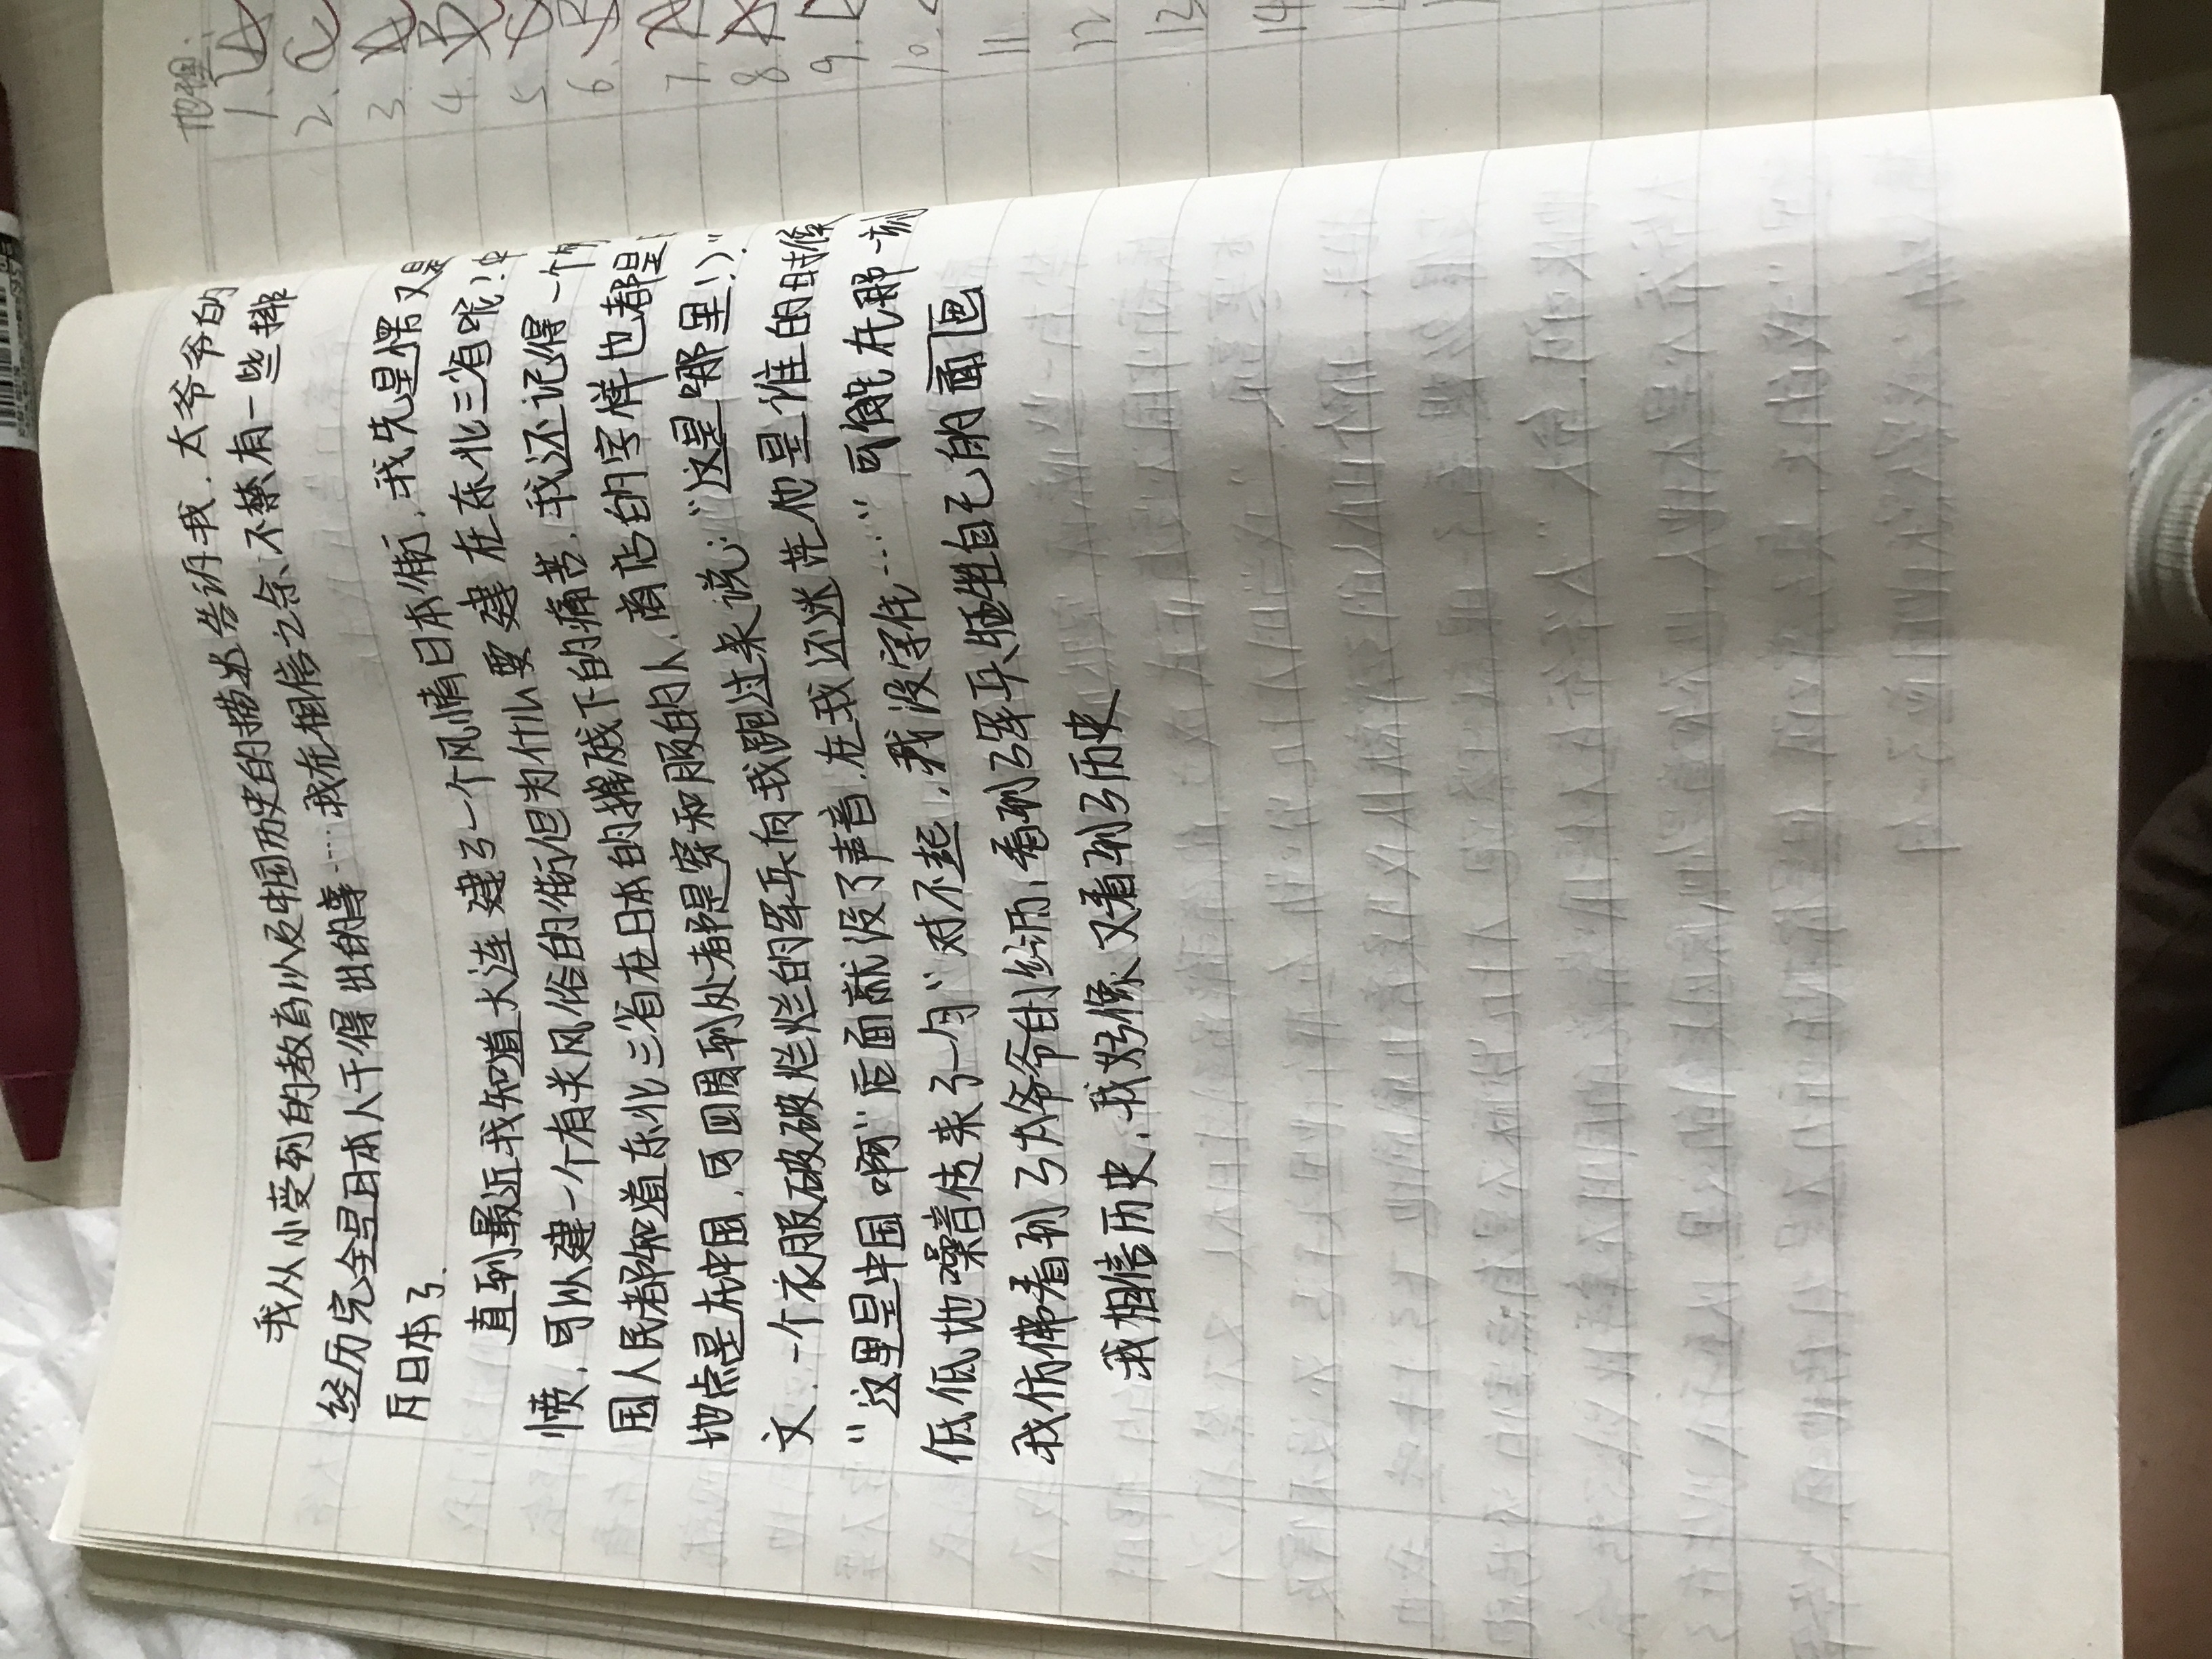 我从小受到的教育以及中国历史的描述告诉我,太爷爷的
经历完全是日本人干得出的事……我在相信之余,不禁有一些排
斥日本了.
直到最近我知道大连建了一个风情日本街,我先是愣又是
愤,可以建一个有关风俗的街但为什么要建在东北三省呢!中
国人民都知道东北三省在日本的摧残下的痛苦,我还记得一个
地点是在中国,可四周到处都是穿和服的人,商店的字样也都是
文,一个衣服破破烂烂的军兵向我跑过来说:“这是哪里!)”.
“这里是中国啊”后面就没了声音,在我还迷茫他是谁的时候
低低地噪音传来了一句“对不起,我没守住……”可能在那一刻
我仿佛看到了太爷爷的经历,看到了军兵牺牲自己的画面
我相信历史,我好像又看到了历史
地理:
1.
2.
3.
4.
5.
6.
7.
8.
9.
10.
11
12
13
14